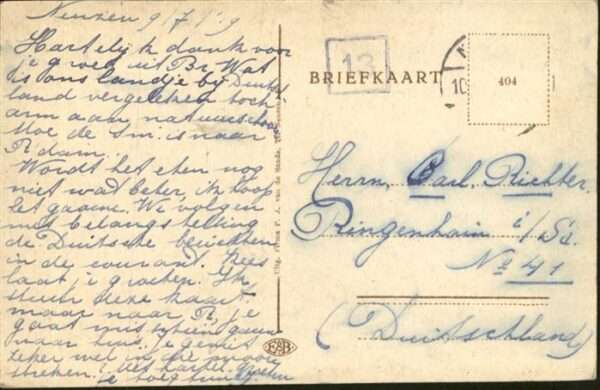 Neuzen 9/7 '19
Hartelijk dank voor
je groet uit Br. Wat
is ons landje bij Duitsch-
land vergeleken toch
arm aan natuurschoon
Moe de Sm. is naar
R'dam.
Wordt het eten nog
niet wat beter, ik hoop
het gaarne. We volgen
met belangstelling
de Duitsche berichten
in de courant. Kees
laat je groeten. Ik
stuur deze kaart
maar naar R, je
gaat misschien gauw
naar huis. Je geniet
zeker wel in die mooie
streken! Met hartel. groeten
je toeg.
13
BRIEFKAART
10
404
Herrn Carl Richter.
Ringenhain i/Sa.
No 41
(Duitschland)
Uitg. Firma F. A. van de Sande,